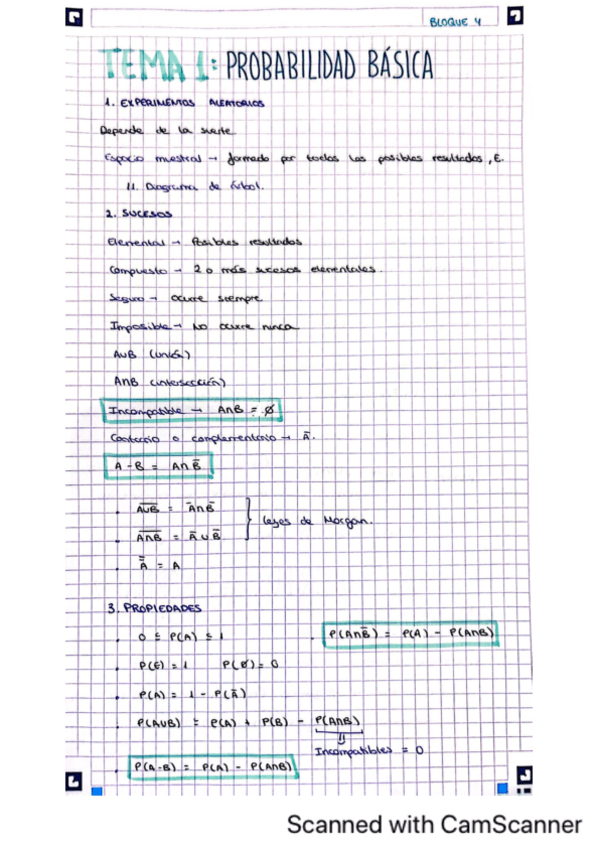 BLOQUE 4
TEMA 1: PROBABILIDAD BÁSICA
1. EXPERIMENTOS ALEATORIOS
Depende de la suerte
Espacio muestral → formado por todos los posibles resultados, E.
Diagrama de árbol.
2. SUCESOS
Elemental → Posibles resultados
Compuesto → 2 o más sucesos elementales.
Seguro → ocurre siempre
Imposible → No ocurre nunca
A∪B (unión)
A∩B (intersección)
Incompatible → A∩B = ∅
Contrario o complementario → Ā.
A - B = A∩B̅
A̅∪̅B̅ = A̅∩B̅
A̅∩̅B̅ = A̅∪B̅
} Leyes de Morgan.
A̿ = A
3. PROPIEDADES
0 ≤ P(A) ≤ 1
P(A∩B̅) = P(A) - P(A∩B)
P(E) = 1 P(∅) = 0
P(A) = 1 - P(A̅)
P(A∪B) = P(A) + P(B) - P(A∩B)
Incompatibles = 0
P(A-B) = P(A) - P(A∩B)
Scanned with CamScanner